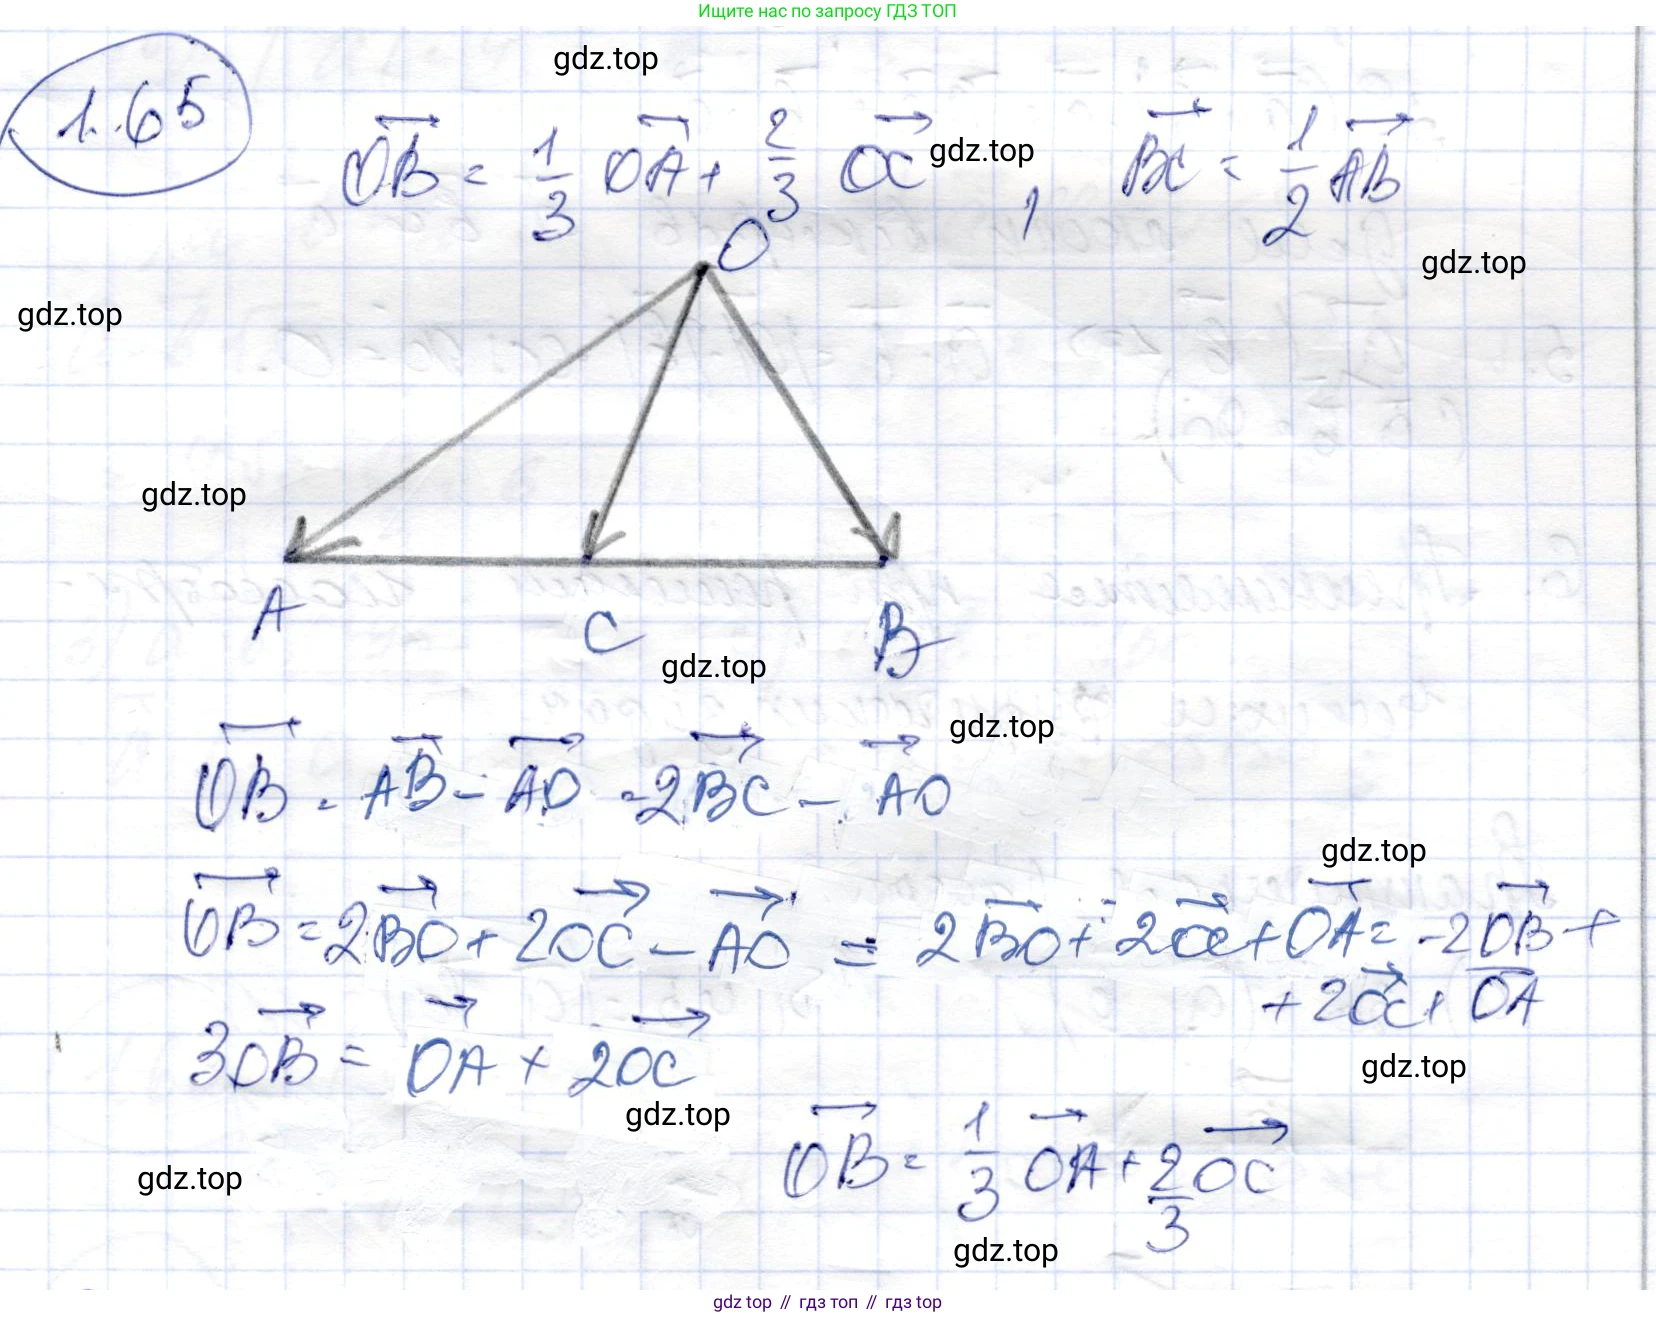 Ищите нас по запросу ГДЗ ТОП
gdz.top
1.65
OB = 1/3 OA + 2/3 OC , BC = 1/2 AB
gdz.top
gdz.top
gdz.top
O
gdz.top
A C B
gdz.top
gdz.top
OB = AB - AO = 2BC - AO
gdz.top
OB = 2BO + 2OC - AO = 2BO + 2OC + OA = -2OB +
+ 2OC + OA
3OB = OA + 2OC
gdz.top
gdz.top
OB = 1/3 OA + 2/3 OC
gdz.top
gdz.top
gdz top // гдз топ // gdz top